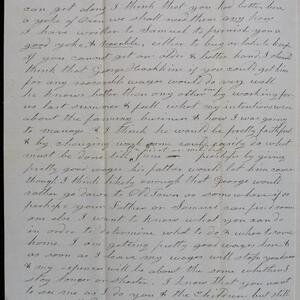 can get along I think that you had better have
a yoke of Oxen we shall need them any how
I have written to Samuel to furnish you a
good yoke, & if possible, either to buy or take to keep
if you cannot get an older & better hand I should
think that George Hopkins if you could get him
for any reasonable wages would do very well
he knows better than any other one by working for
us last summer & fall what my intentions were
about the farming business & how I was going
to manage & I think he would be pretty faithful
& by changing work some could easily do what
must be done till perhaps by giving
pretty good wages his father would let him come
though I think likely enough that George would
rather go down to Old Town or somewhere if so
perhaps your Father or Samuel can find some
one else I want to know what you can do
in order to determine what to do & when to come
home. I am getting pretty good wages here &
as soon as I leave my wages will stop
& my expenses will be about the same whether I
stay longer or shorter. I know that you want
to see me as I do you & the Children but still